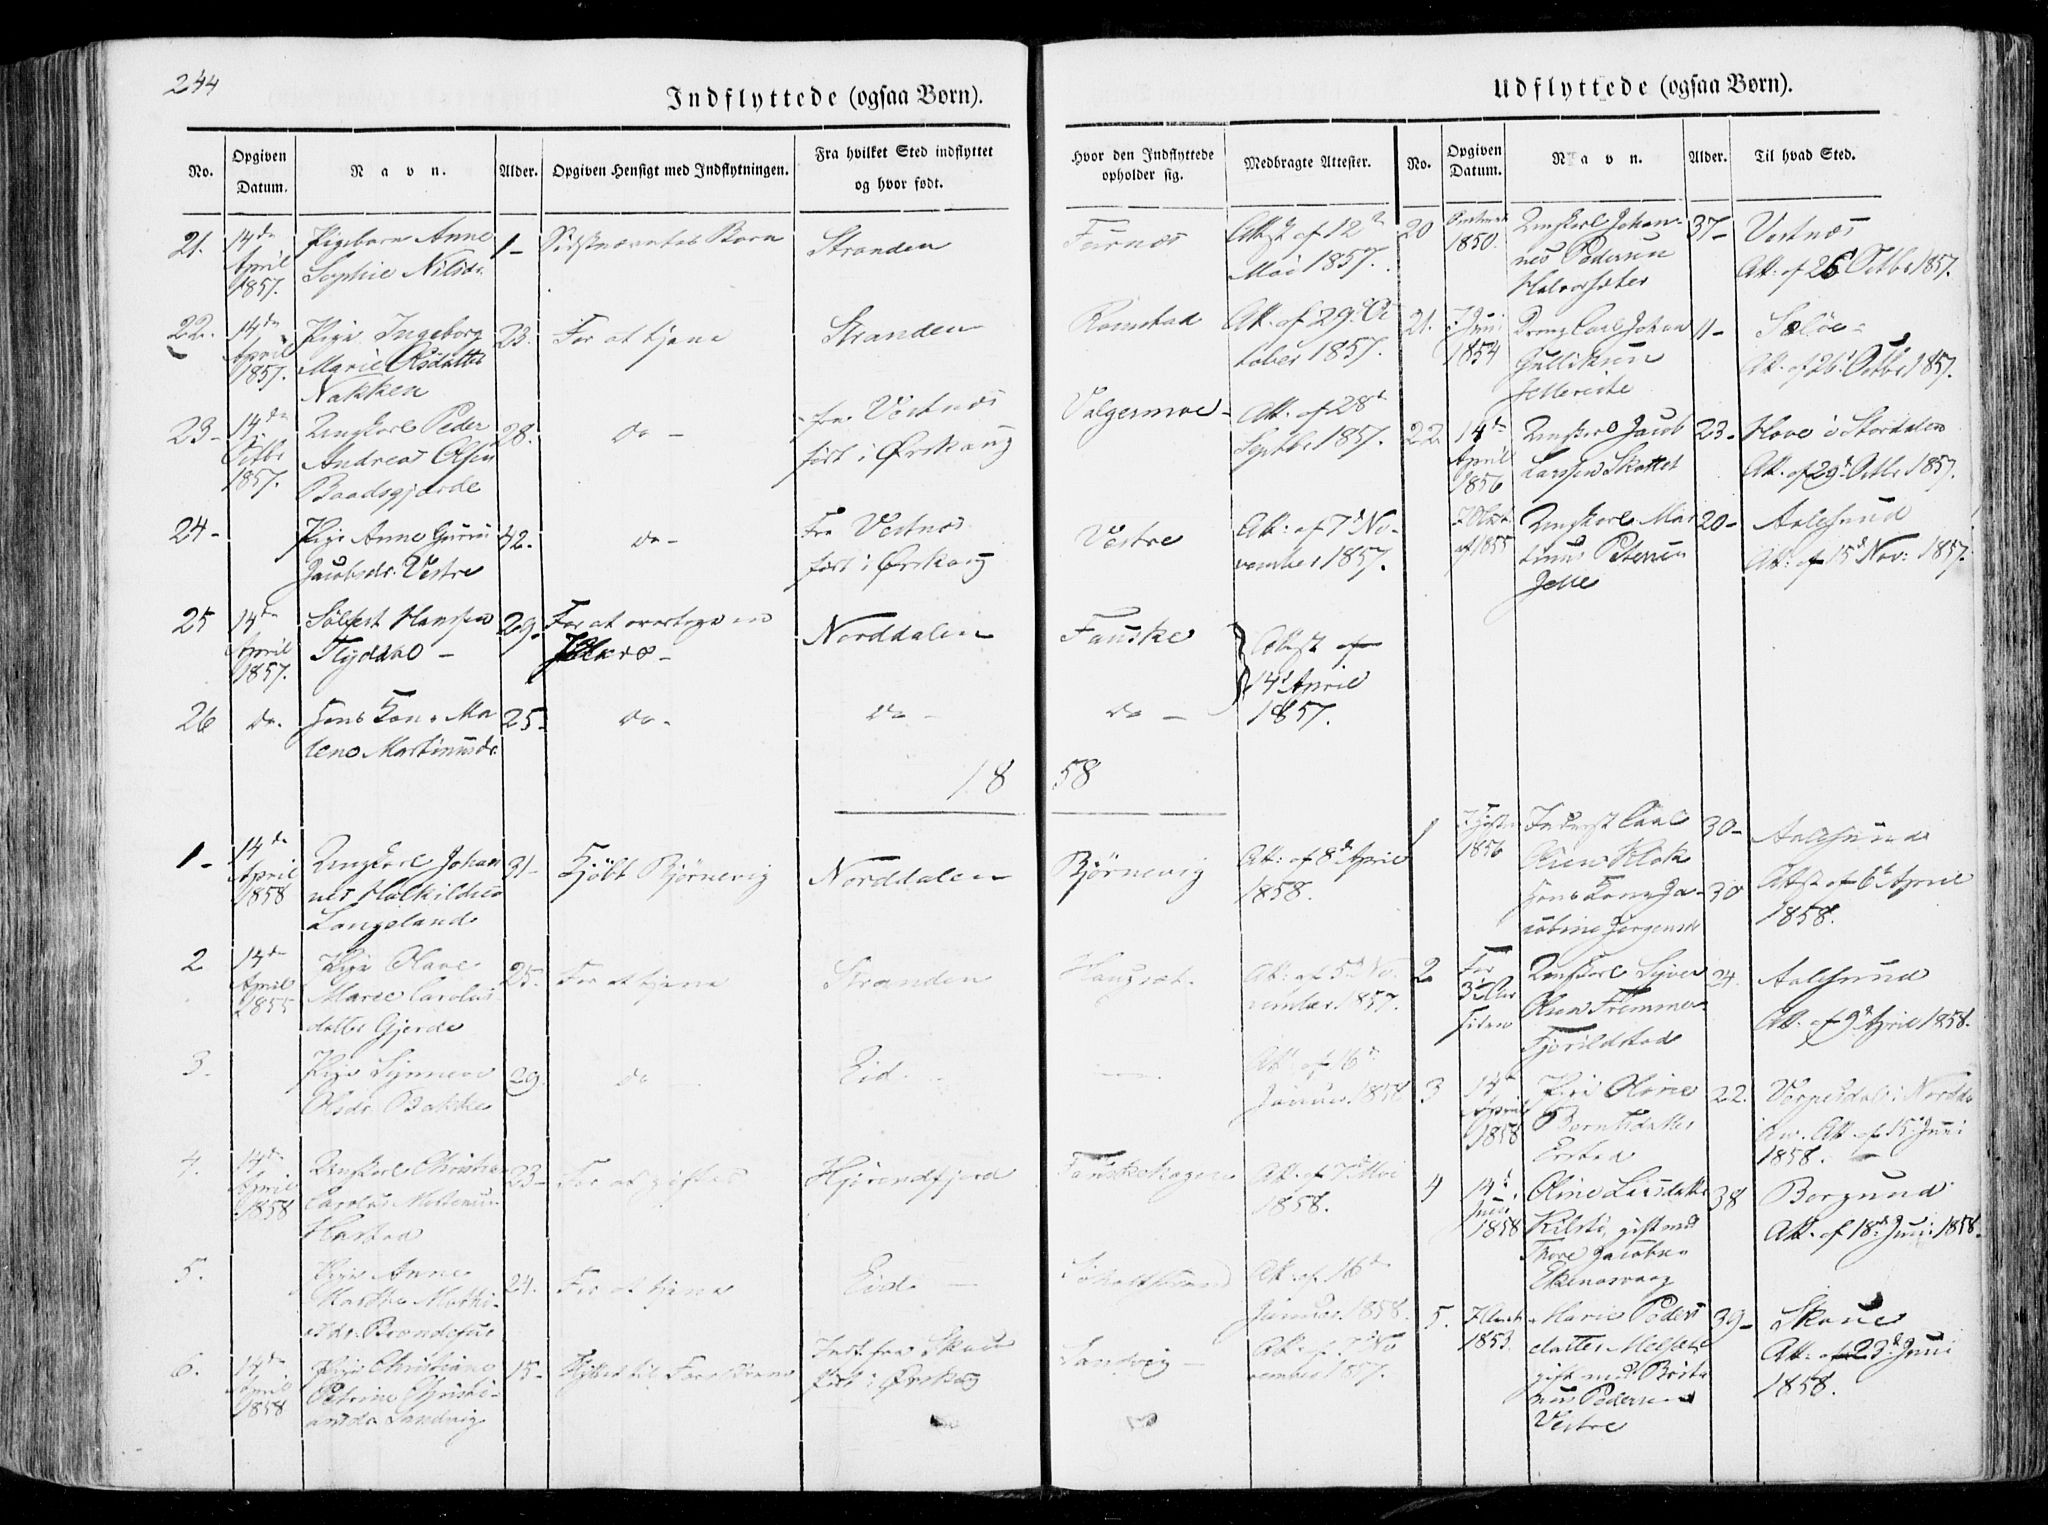 244
Indflyttede (ogsaa Børn).
No.
Opgiven Datum.
Navn.
Alder.
Opgiven Hensigt med Indflytningen.
Fra hvilket Sted indflyttet og hvor født.
Hvor den Indflyttede opholder sig.
Medbragte Attester.
21. 14de April 1857. Pigebarn Anne Sophie Nilsdr. 1- Sidstnævntes Barn Stranden Furnæs Attst af 12te Mai 1857.
22. 14de April 1857. Pige Ingeborg Marie Olsdatter Nakken 23. For at tjene Stranden Ramstad Att. af 29d October 1857.
23- 14de Octbr 1857. Ungkarl Peder Andreas Olsen Baadsgjærde 28. do- fra Vestnæs født i Ørskoug Valgermoe- Att. af 28de Septbr 1857.
24- Pige Anne Guru Jacobsdr. Vestre 42. do- Fra Vestnæs født i Ørskoug Vestre Att. af 7d November 1857.
25 14de April 1857. Sølfest Hanssen Flydahl- 29. For at overtage en Norddalen Fauske Attest af 14d April 1857.
26 do. Hans Kone Malene Martinusdr. 25- do- do- do-
1858
1- 14de April 1858 Ungkarl Johannes Holkildsen Langeland 31- Kjøbt Bjørnevig Norddalen Bjørnevig Att: af 8d April 1858.
2 14de April 1855 Pige Olave Marie Carolusdatter Gjerde 25. For at tjene Stranden Haugset. Att. af 5d November 1857.
3. Pige Synneve Olsdr. Bakke 29. do- Eid. Att af 16de Januar 1858
4. 14de April 1858 Ungkarl Christian Carolus Mortensen Harstad 23- For at giftes Hjørendfjord Fauskehagen Att. af 7d Mai 1858.
5. Pige Anne Marthe 24. For at tjene Eid- Att. af 16de Januar 1858.
6. 14de April 1858 Pige Christiane Petrine Christiansdr. Sandvig 15- Flyttet til Forældrene Indf. fra Skoue født i Ørskoug Sandvig- Att af 7d November 1857.
Udflyttede (ogsaa Børn).
No.
Opgiven Datum.
Navn.
Alder.
Til hvad Sted.
20 1850. Ungkarl Johannes Pedersen Halvorsæter 37- Vestnæs Att: af 26 Octbr 1857.
21. Juni 1854 Dreng Carl Johan Gulliksen 11- Att. af 26d Octbr 1857.
22. 14de April 1856 Ungkarl Jacob Larssen Skottet 23- Hove i Stordalen Att. af 29d Octbr 1857.
1855 Ungkarl Martinus Petersen Jelle 20- Aalesund Att. af 15d Nov: 1857.
1 1856 Inderst Carl Olsen Klok 30- hans Kone Jacobine Jørgensd 30 Aalesund Attst af 6d April 1858.
2 For 3 Aar siden Ungkarl Syver Olsen Fremmer Fjørildstad 24. Aalesund Att. af 9d April 1858.
3 14de April 1858 Pige Oline Berntsdatter 22. i Norddalen. Att. af 15d Juni 1858.
4 14d Juni 1858 Oline Larsdatter Kilsti, gift med Thore Jacobsen Ekrenasvaag 38 Borgund Att. af 18de Juni 1858.
5. 1853. Marie Pedersdatter Melset gift med Pedersen Vestre 39- Skoue Att. af 23d Juni 1858.